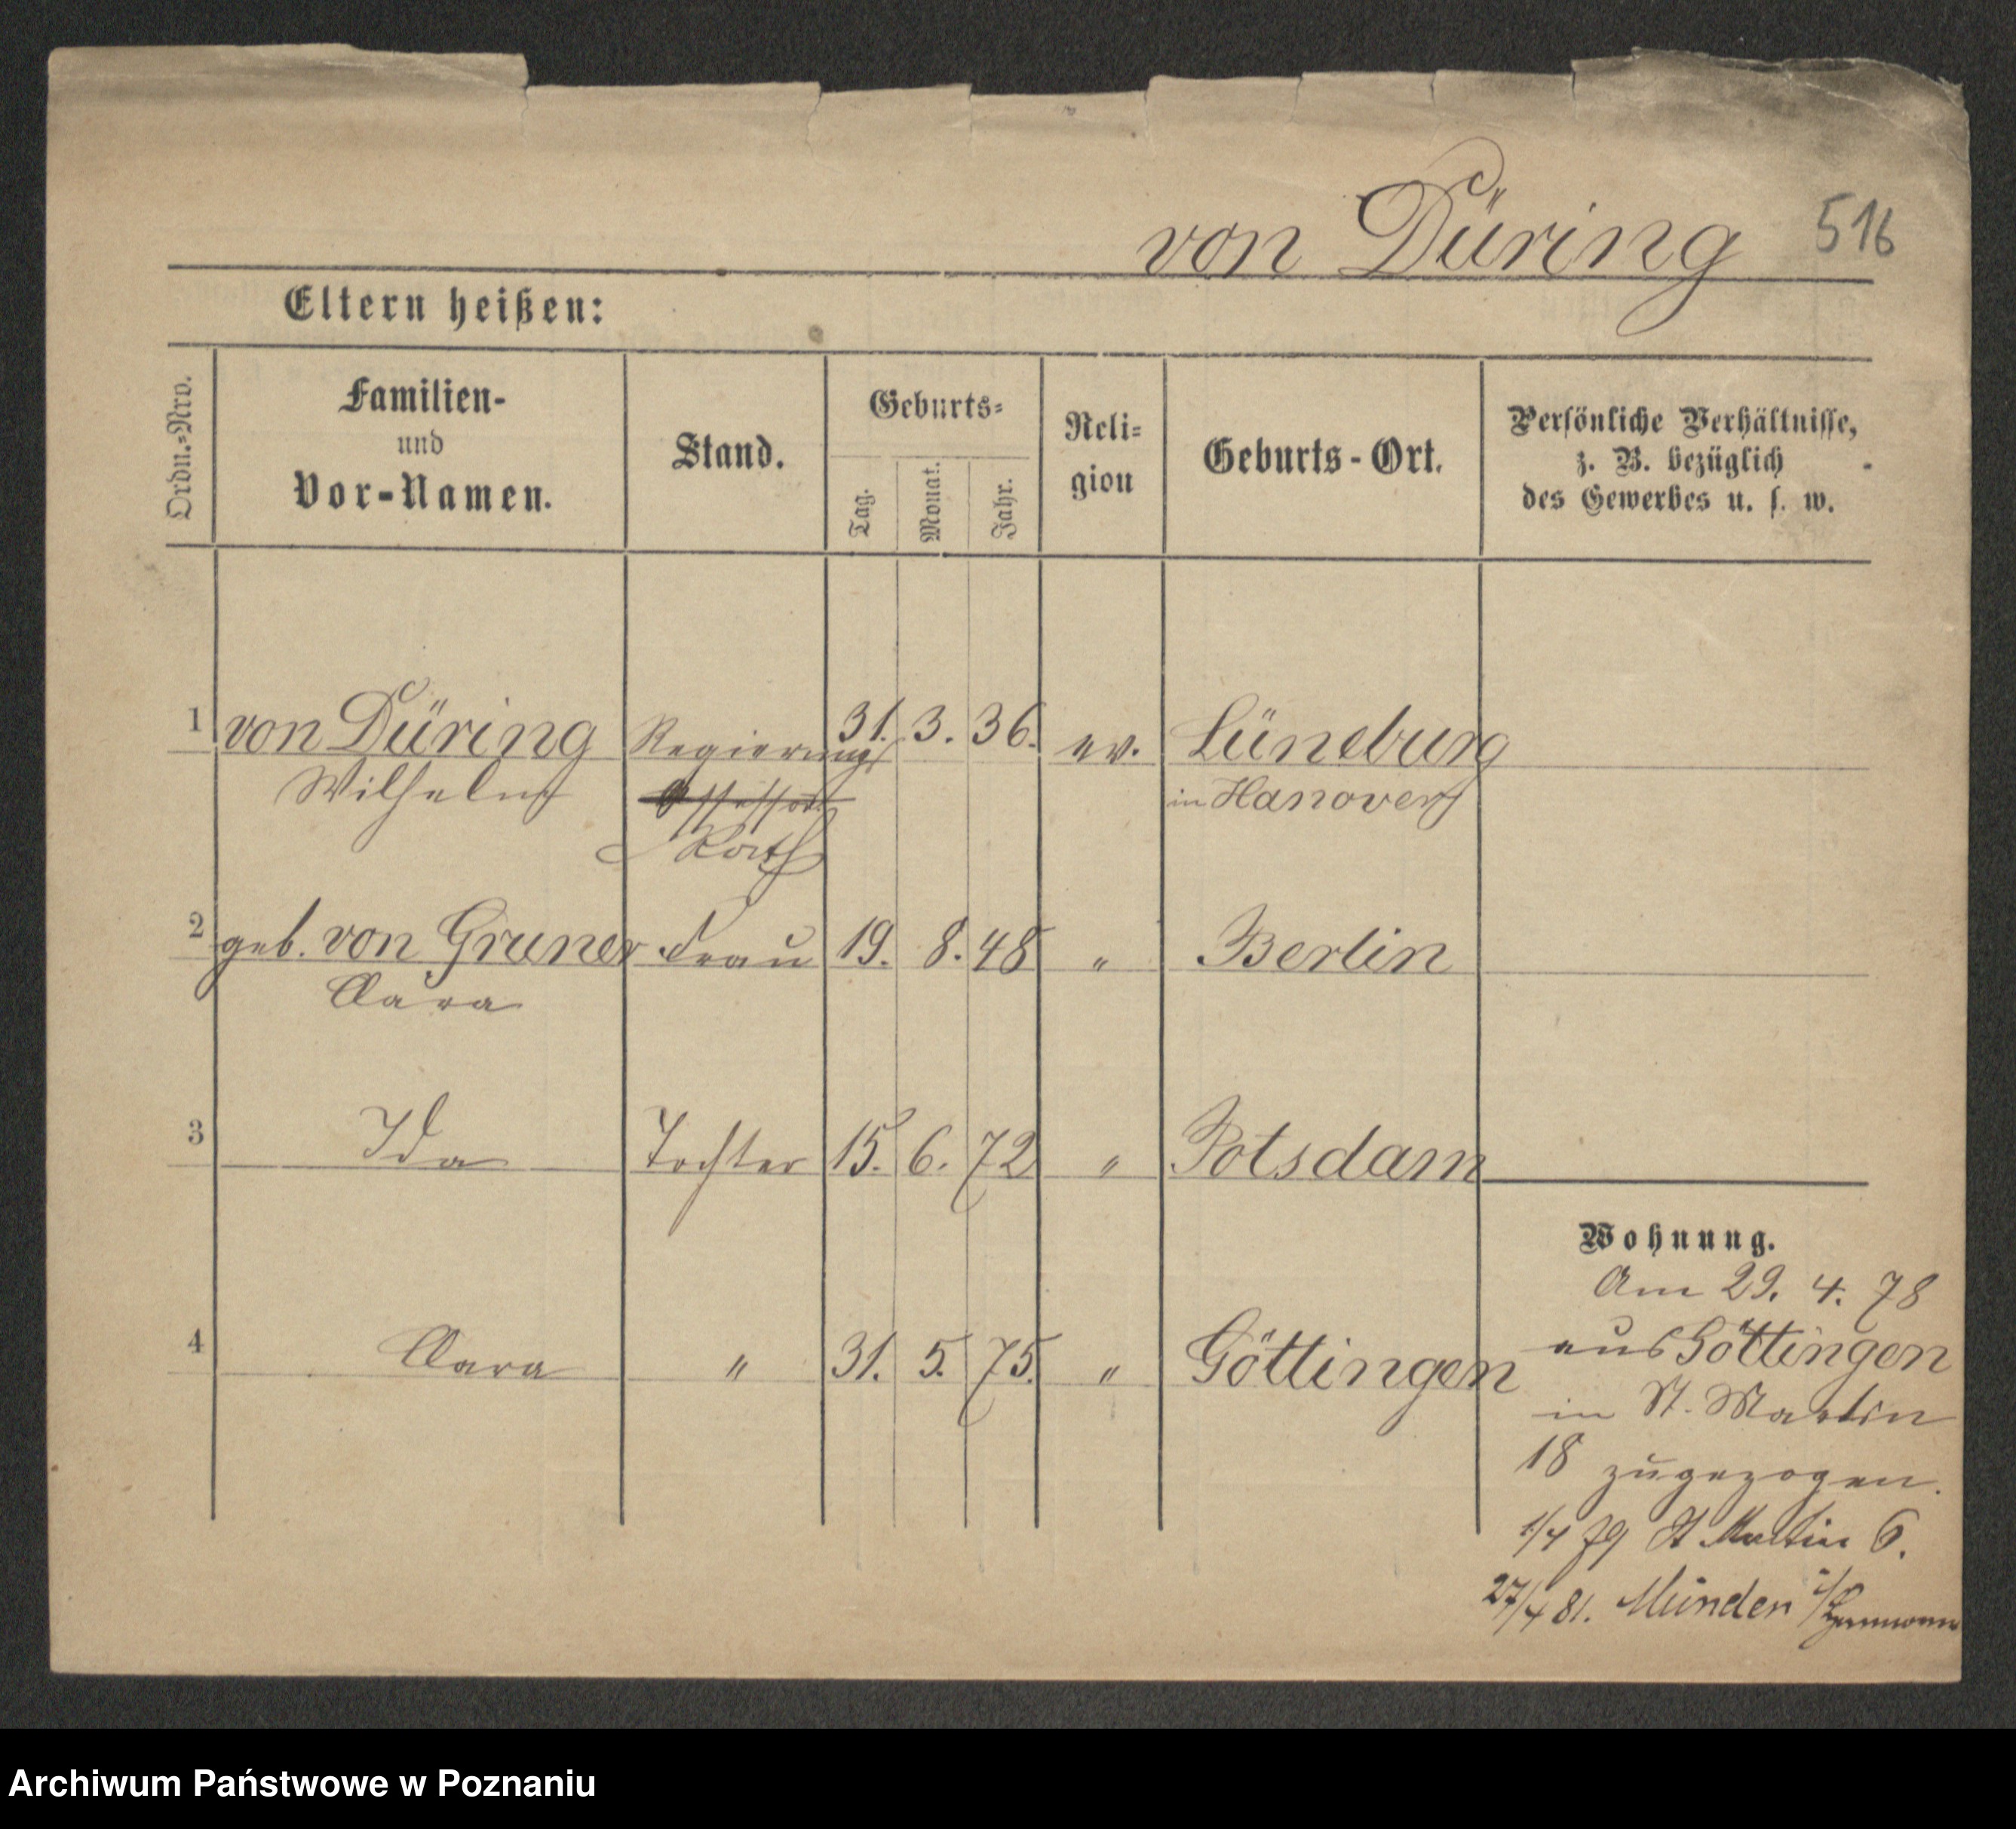 von Düring 516
Eltern heißen:
Ordn.=Nro.
Familien-
und
Vor-Namen.
Stand.
Geburts=
Tag.
Monat.
Jahr.
Reli=
gion
Geburts-Ort.
Persönliche Verhältnisse,
z. B. bezüglich
des Gewerbes u. s. w.
1 von Düring Regierungs 31. 3. 36. ev. Lüneburg
Wilhelm Assessor in Hanover
Rath
2 geb. von Gruner Frau 19. 8. 48 " Berlin
Clara
3 Ida Tochter 15. 6. 72 " Potsdam
4 Clara " 31. 5. 75. " Göttingen
Wohnung.
Am 29. 4. 78
aus Göttingen
in St. Martin
18 zugezogen.
1/4 79 St Martin 6.
27/4 81. Münden i/
Archiwum Państwowe w Poznaniu